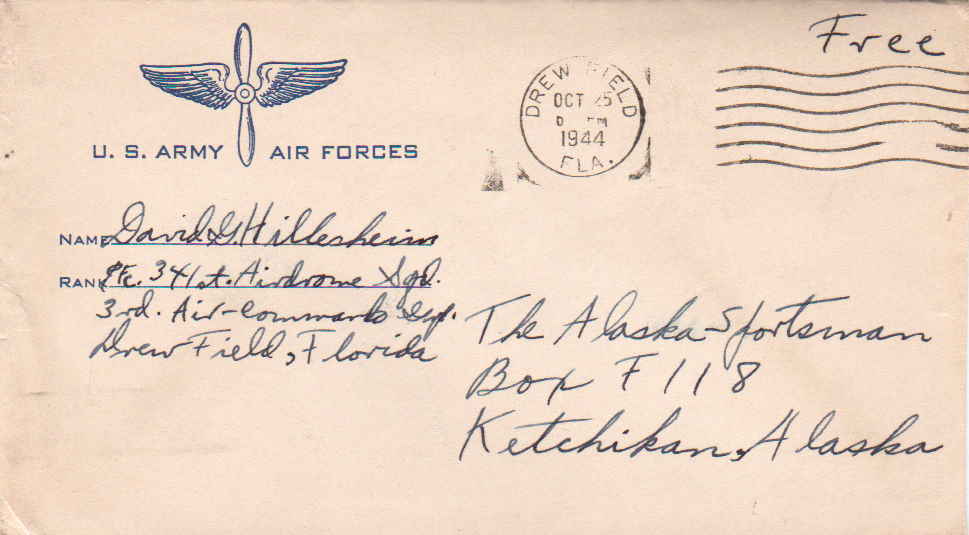 Free
DREW FIELD
OCT 25
PM
1944
FLA.
U. S. ARMY AIR FORCES
NAME David G. Hillesheim
RANK Pfc. 341st. Airdrome Sqd.
3rd. Air-Commando Grp.
Drew Field, Florida
The Alaska Sportsman
Box F 118
Ketchikan, Alaska